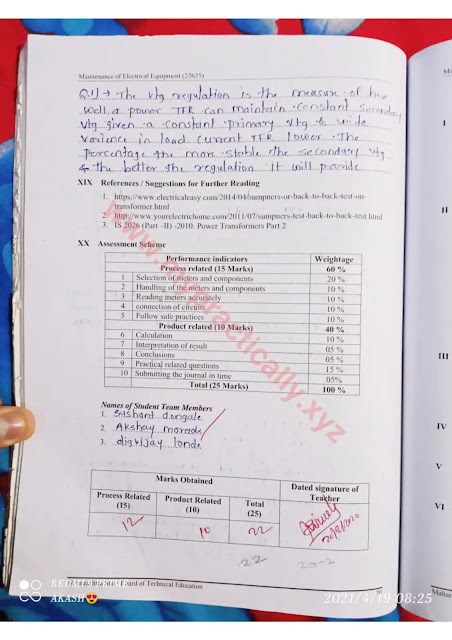 Maintenance of Electrical Equipment (22625)
Q.1) → The Vtg regulation is the measure of how
well a power TFR can maintain constant secondary
Vtg given a constant primary Vtg & wide
varience in load current TFR Lower the
percentage the more stable the secondary Vtg
& the better the regulation it will provide
XIX References / Suggestions for Further Reading
1. https://www.electricaleasy.com/2014/04/sumpners-or-back-to-back-test-on-
transformer.html
2. http://www.yourelectrichome.com/2011/07/sumpners-test-back-to-back-test.html
3. IS 2026 (Part –II) -2010: Power Transformers Part 2
XX Assessment Scheme
Performance indicators Weightage
Process related (15 Marks) 60 %
1 Selection of meters and components 20 %
2 Handling of the meters and components 10 %
3 Reading meters accurately 10 %
4 connection of circuits 10 %
5 Follow safe practices 10 %
Product related (10 Marks) 40 %
6 Calculation 10 %
7 Interpretation of result 05 %
8 Conclusions 05 %
9 Practical related questions 15 %
10 Submitting the journal in time 05%
Total (25 Marks) 100 %
www.mypractically.xyz
Names of Student Team Members
1. Sushant dongale
2. Akshay morade
3. digvijay londe
Marks Obtained Dated signature of
Teacher
Process Related
(15) Product Related
(10) Total
(25)
12 10 22
22
Board of Technical Education
REDMI 9 PRIME
AKASH😍
2021/4/19 08:25
I
II
III
IV
V
VI